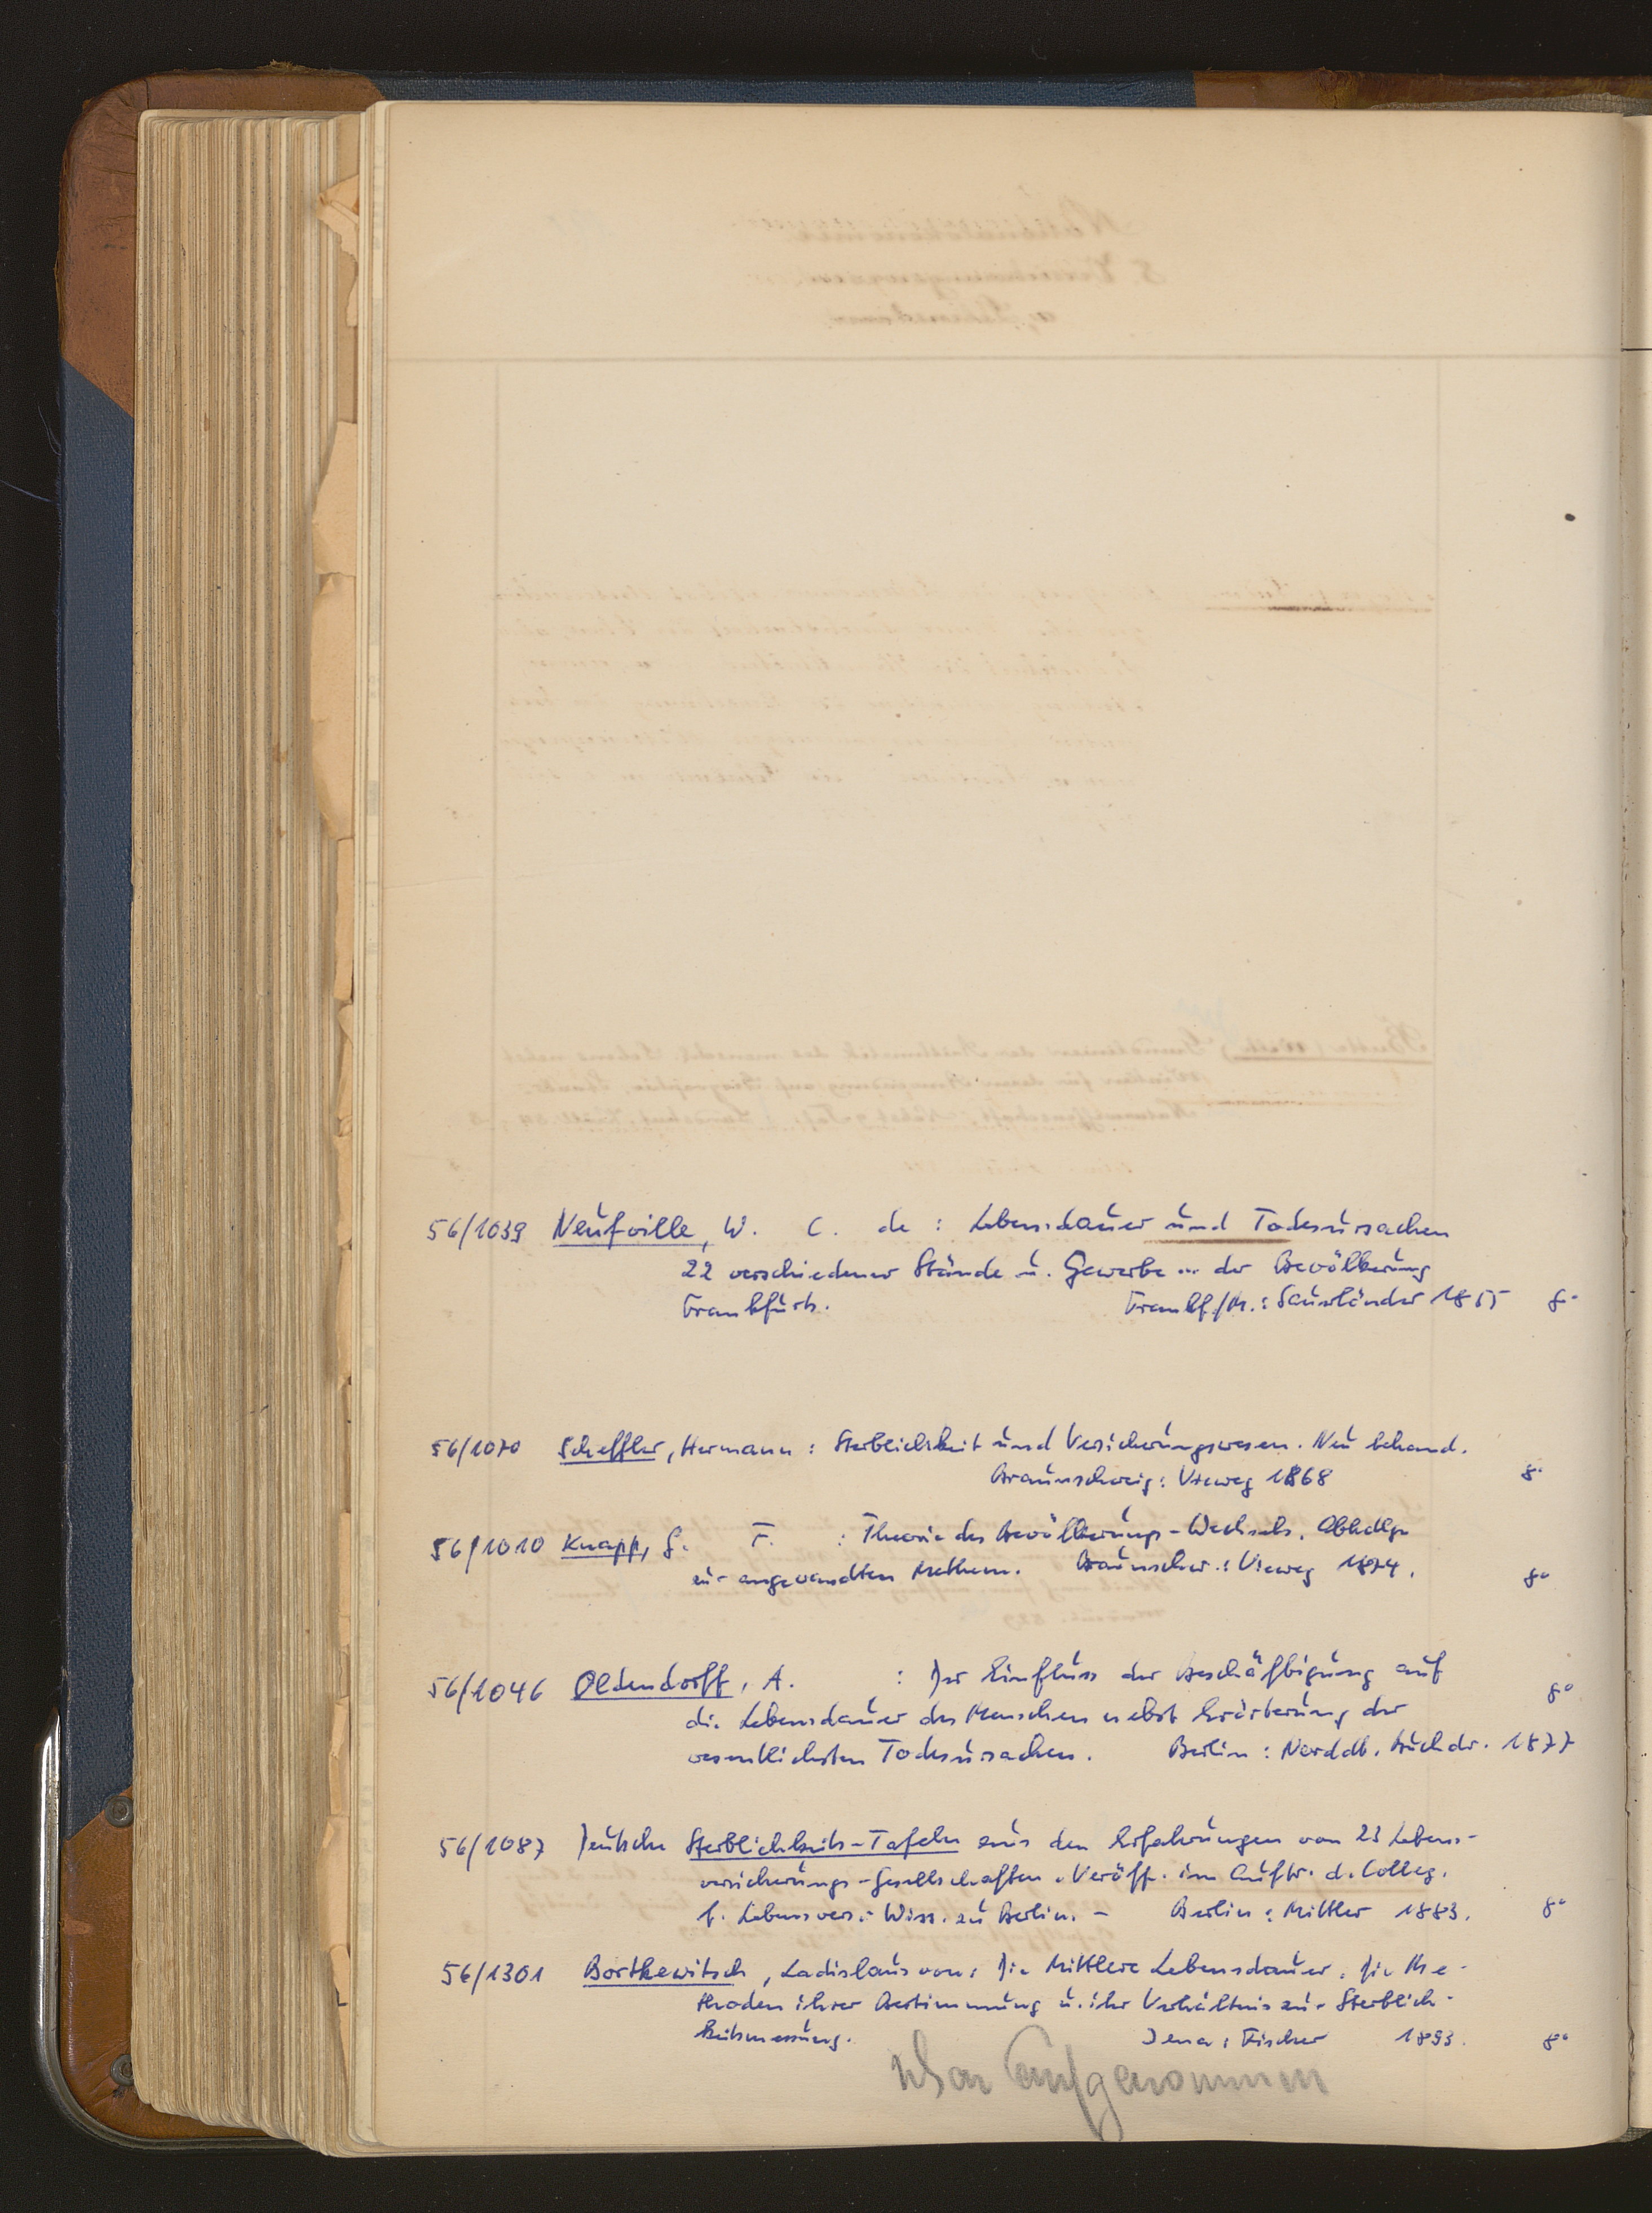 56/1039 Neufville, W. C. de : Lebensdauer und Todesursachen
22 verschiedener Stände u. Gewerbe in der Bevölkerung
Frankfurts. Frankf./M.: Sauerländer 1855 8°
56/1070 Scheffler, Hermann : Sterblichkeit und Versicherungswesen. Neu behand.
Braunschweig: Vieweg 1868 8°
56/1010 Knapp, G. F. : Theorie des Bevölkerungs-Wechsels. Abhdlgn
zur angewandten Mathem. Braunschw.: Vieweg 1874. 8°
56/1046 Oldendorff, A. : Der Einfluss der Beschäftigung auf 8°
die Lebensdauer des Menschen nebst Erörterung der
wesentlichsten Todesursachen. Berlin: Norddt. Buchdr. 1877
56/1087 Deutsche Sterblichkeits-Tafeln aus den Erfahrungen von 23 Lebens-
versicherungs-Gesellschaften. Veröff. im Auftr. d. Colleg.
f. Lebensvers.-Wiss. zu Berlin. - Berlin: Mittler 1883. 8°
56/1301 Bortkewitsch, Ladislaus von: Die Mittlere Lebensdauer. Die Me-
thoden ihrer Bestimmung u. ihr Verhältnis zur Sterblich-
keitsmessung. Jena: Fischer 1893. 8°
aufgenommen